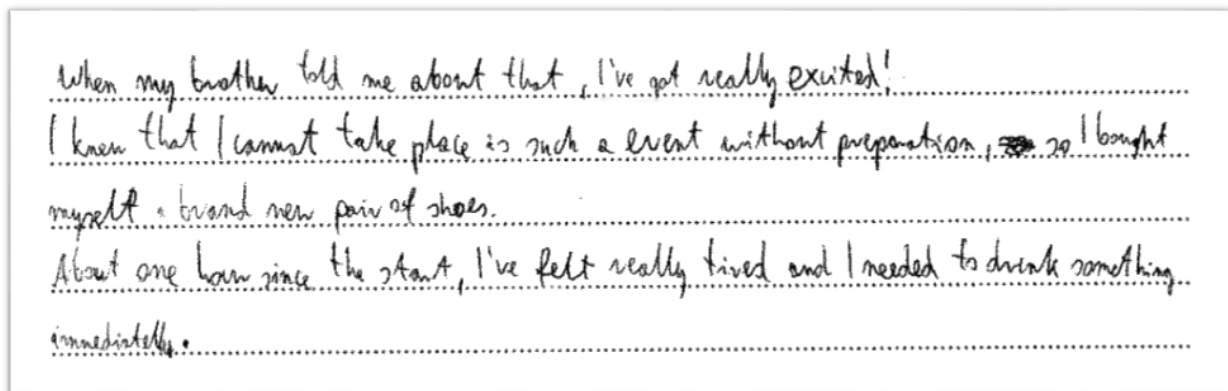 When my brother told me about that, I've got really excited!
I knew that I cannot take place in such a event without preparation, so I bought
myself a brand new pair of shoes.
About one hour since the start, I've felt really tired and I needed to drink something
immediatelly.